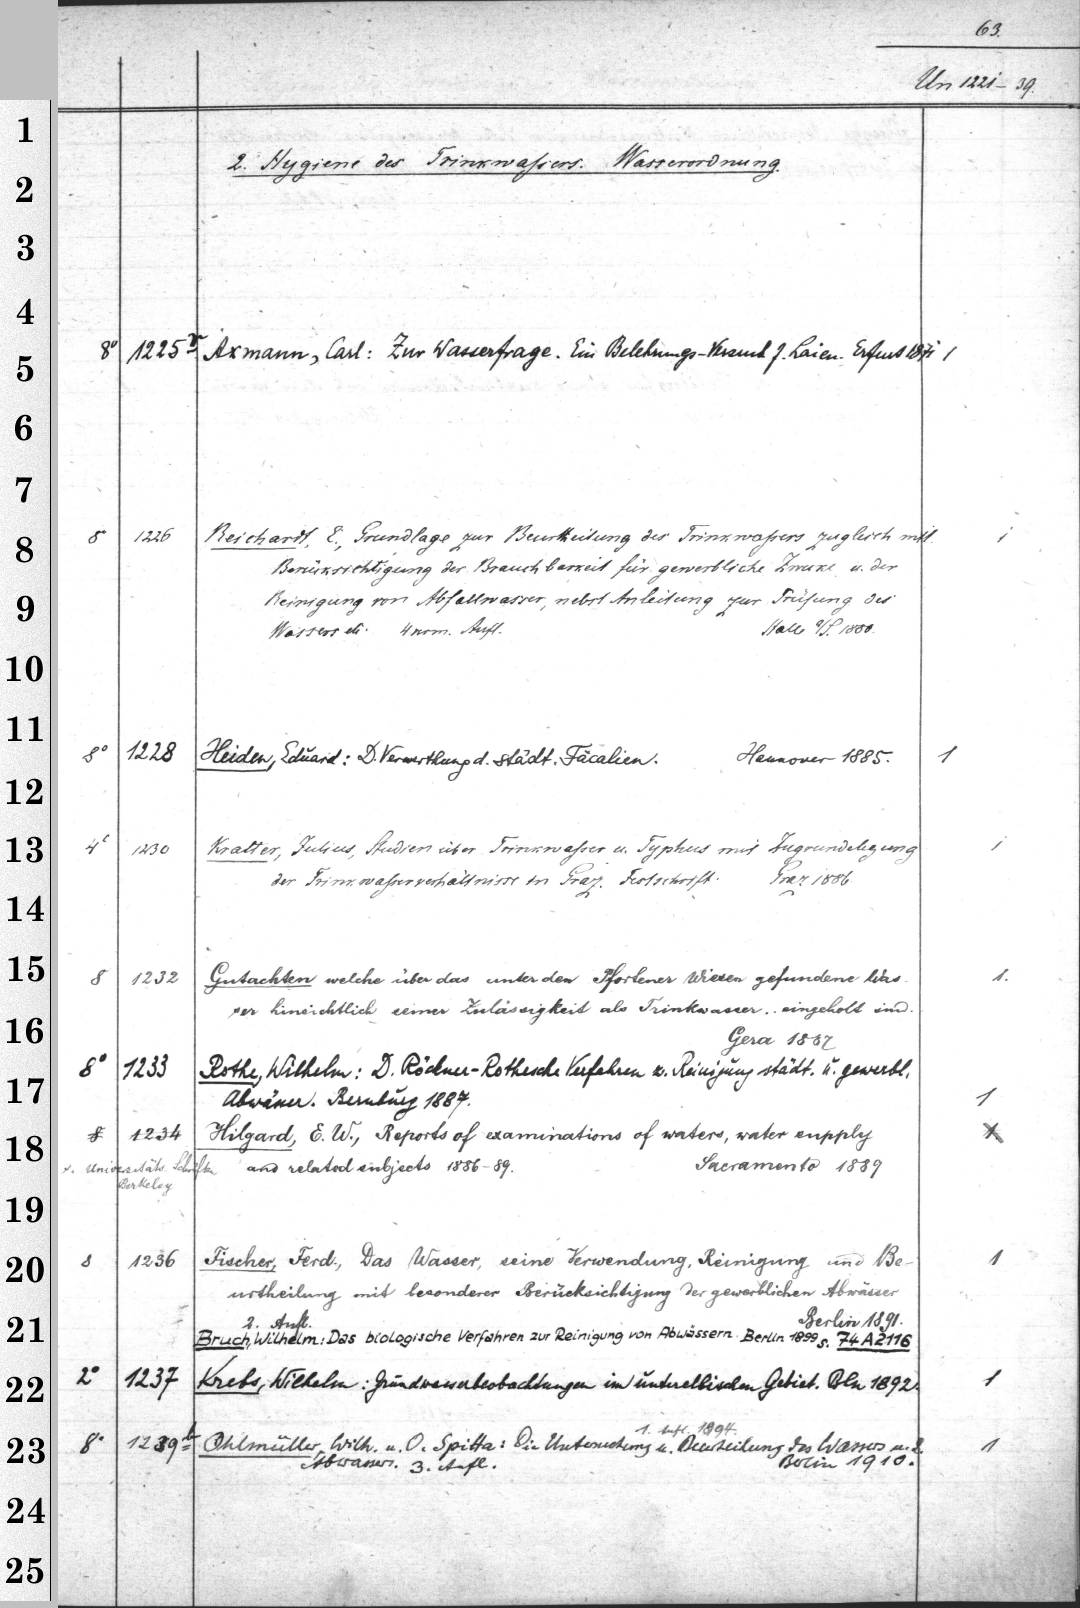 63.
Un 1221-39.
2. Hygiene des Trinkwassers. Wasserordnung.
8° 1225 Axmann, Carl: Zur Wasserfrage. Ein Belehrungs-Versuch f. Laien. Erfurt 1871 1
8 1226 Reichardt, E., Grundlage zur Beurtheilung des Trinkwassers zugleich mit 1
Berücksichtigung der Brauchbarkeit für gewerbliche Zwecke u. der
Reinigung von Abfallwasser, nebst Anleitung zur Prüfung des
Wassers etc. 4 verm. Aufl. Halle a/S. 1880.
8° 1228 Heiden, Eduard: D. Verwerthung d. städt. Fäcalien. Hannover 1885. 1
4° 1230 Kratter, Julius, Studien über Trinkwasser u. Typhus mit Zugrundelegung 1
der Trinkwasserverhältnisse in Graz. Festschrift. Graz 1886
8 1232 Gutachten welche über das unter den Pfortener Wiesen gefundene Was- 1.
ser hinsichtlich seiner Zulässigkeit als Trinkwasser.. eingeholt sind.
Gera 1887
8° 1233 Rothe, Wilhelm: D. Röckner-Rothesche Verfahren z. Reinigung städt. u. gewerbl.
Abwässer. Bernburg 1887. 1
8 1234 Hilgard, E. W., Reports of examinations of waters, water supply
s. Universitäts Schriften and related subjects 1886-89. Sacramento 1889
Berkeley
8 1236 Fischer, Ferd., Das Wasser, seine Verwendung, Reinigung und Be- 1
urtheilung mit besonderer Berücksichtigung der gewerblichen Abwässer
2. Aufl. Berlin 1891.
Bruch, Wilhelm: Das biologische Verfahren zur Reinigung von Abwässern. Berlin 1899 s. 74 A 2116
2° 1237 Krebs, Wilhelm: Grundwasserbeobachtungen im unterelbischen Gebiet. Bln 1892. 1
1. Aufl. 1894.
8° 1239b Ohlmüller, Wilh. u. O. Spitta: Die Untersuchung u. Beurteilung des Wassers u. d. 1
Abwassers. 3. Aufl. Berlin 1910.
1
2
3
4
5
6
7
8
9
10
11
12
13
14
15
16
17
18
19
20
21
22
23
24
25